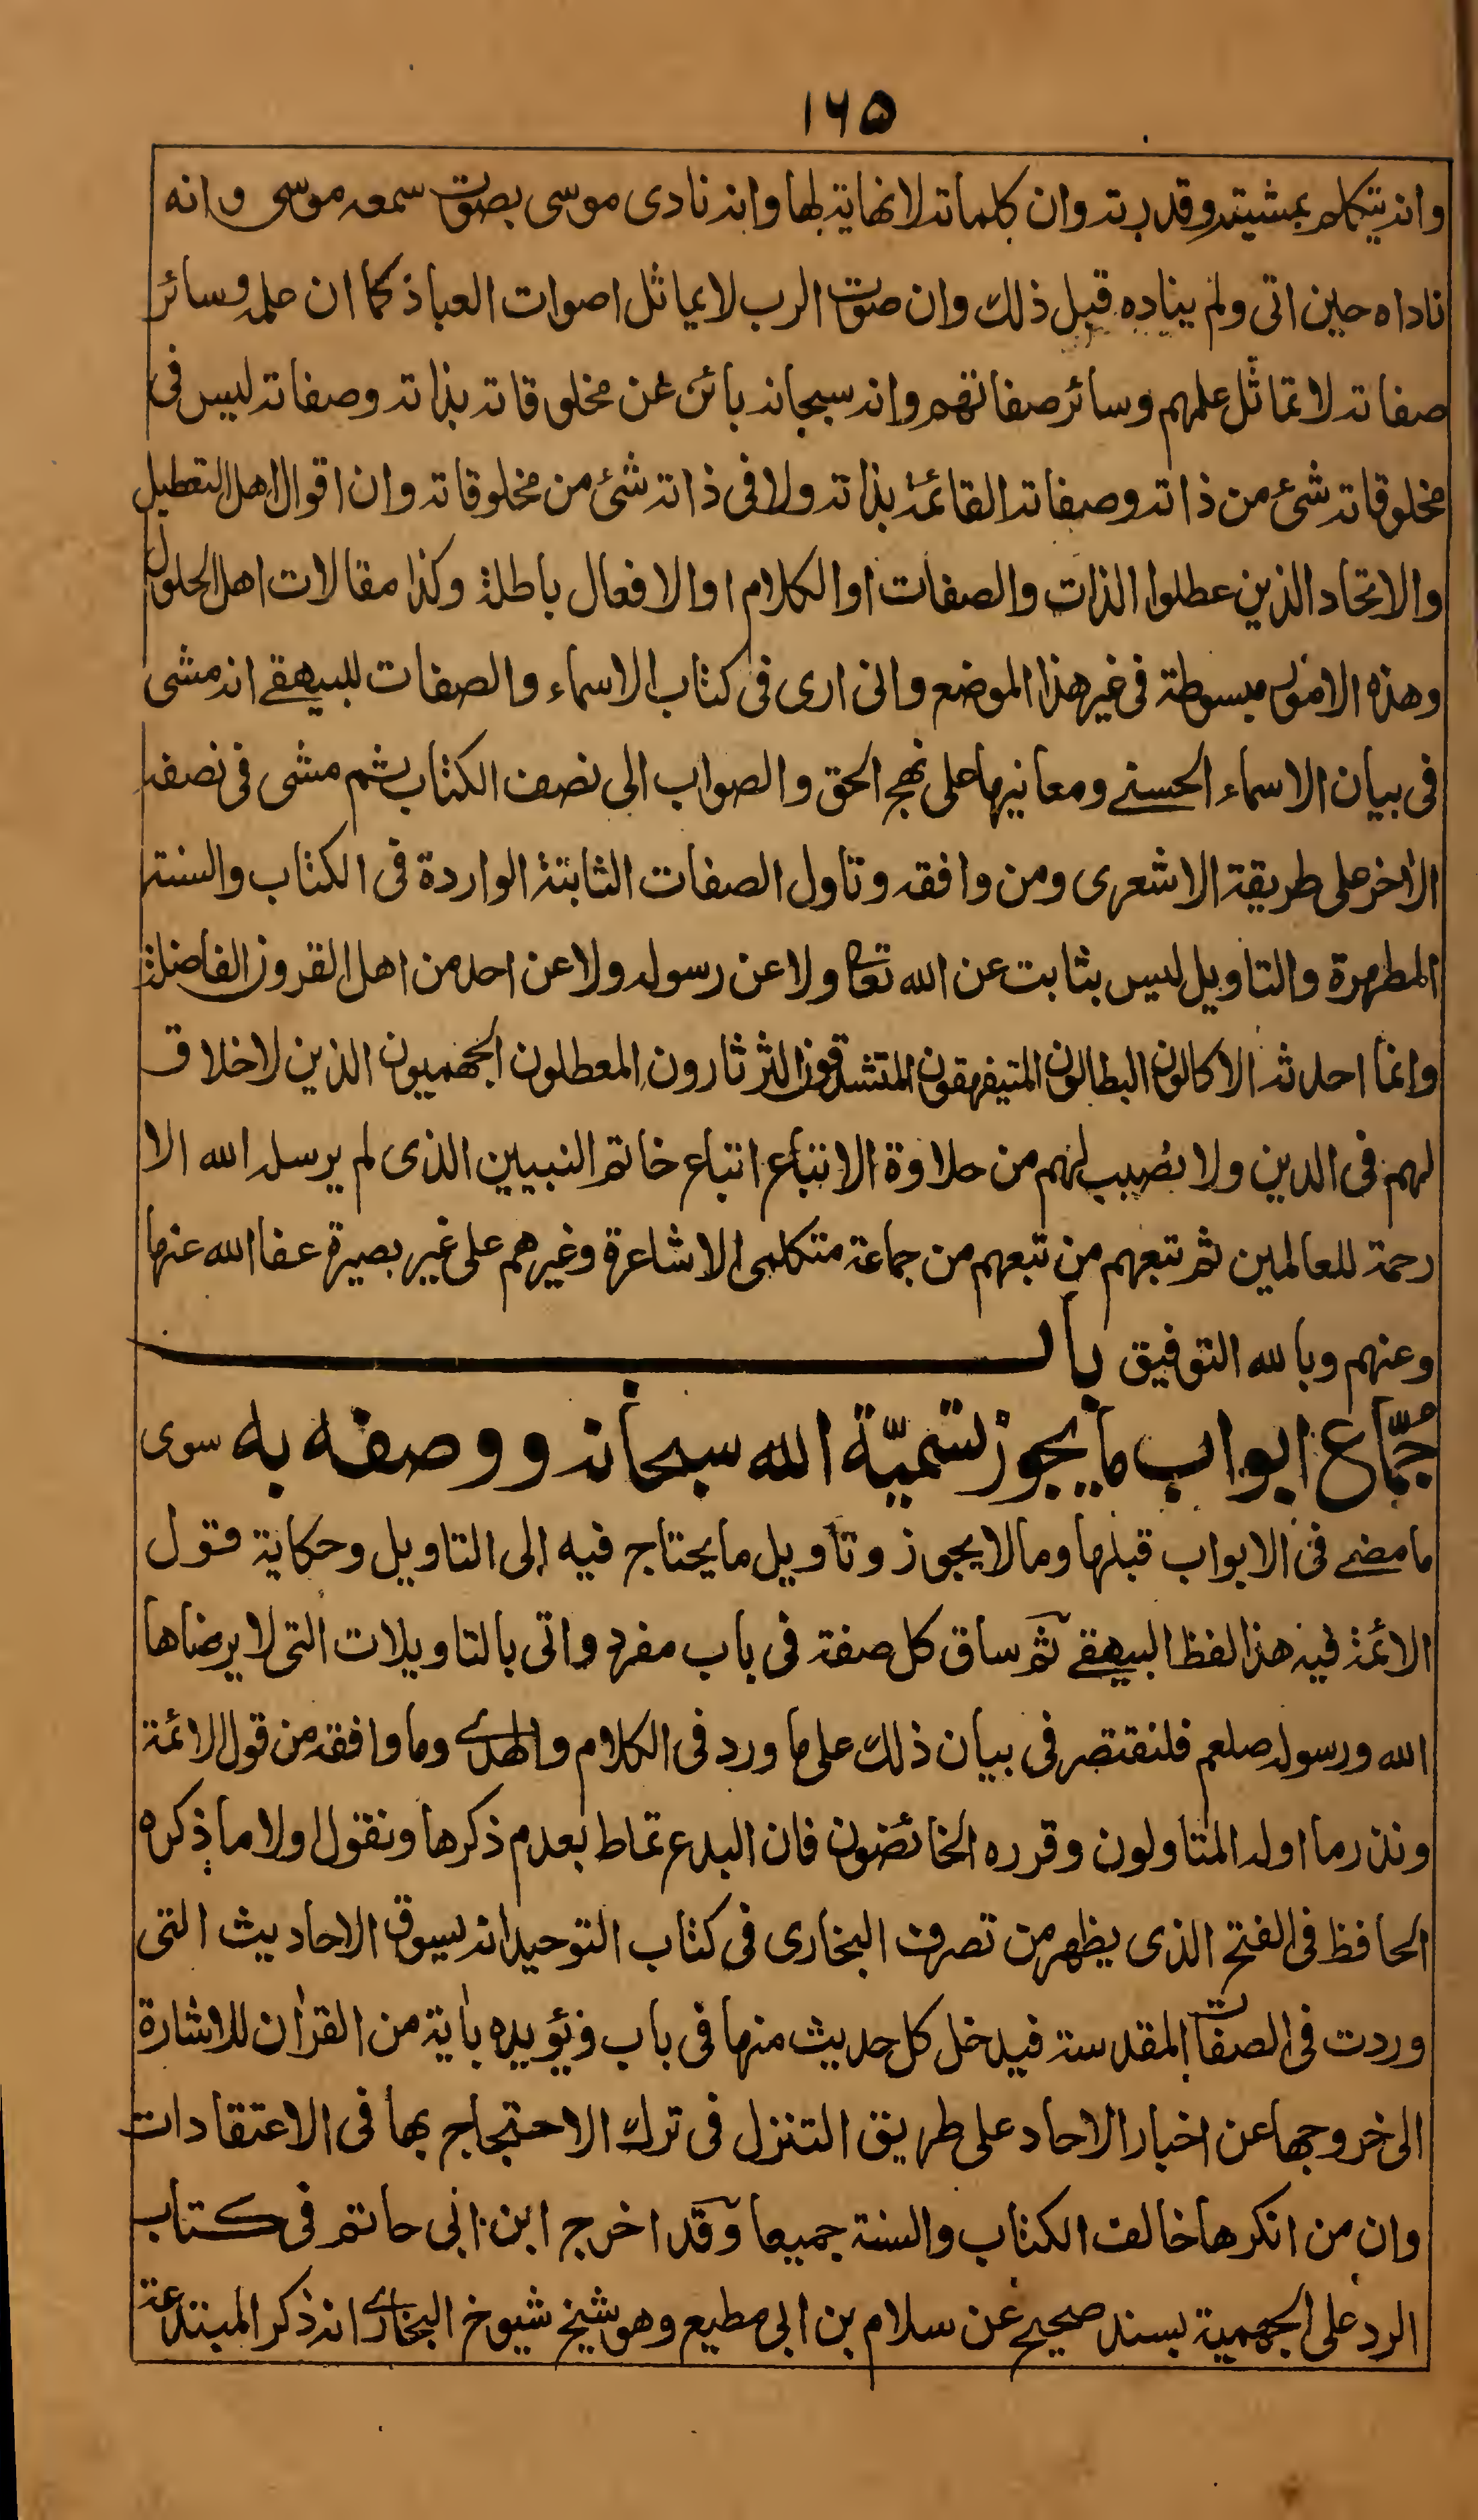 ١٦٥
وانه يتكلم بمشيته وقدرته وان كلماته لانهاية لها وانه نادى موسى بصوت سمعه موسى وانه
ناداه حين اتى ولم يناده قبل ذلك وان صوت الرب لا يماثل اصوات العباد كما ان علمه وسائر
صفاته لا تماثل علمهم وسائر صفاتهم وانه سبحانه بائن عن مخلوقاته بذاته وصفاته ليس فى
مخلوقاته شئ من ذاته وصفاته القائمة بذاته ولا فى ذاته شئ من مخلوقاته وان اقوال اهل التعطيل
والاتحاد الذين عطلوا الذات والصفات او الكلام او الافعال باطلة وكذا مقالات اهل الحلول
وهذه الامور مبسوطة فى غير هذا الموضع وانى ارى فى كتاب الاسماء والصفات للبيهقے انه مشى
فى بيان الاسماء الحسنے ومعانيها على نهج الحق والصواب الى نصف الكتاب ثم مشى فى نصفه
الاخر على طريقة الاشعرى ومن وافقه وتاول الصفات الثابتة الواردة فى الكتاب والسنة
المطهرة والتاويل ليس بثابت عن الله تعا ولا عن رسوله ولا عن احد من اهل القرون الفاضلة
وانما احدثه الاكالون البطالون المتيفهقون المتشدقون الثرثارون المعطلون الجهميون الذين لاخلاق
لهم فى الدين ولا نصيب لهم من حلاوة الاتباع اتباع خاتم النبيين الذى لم يرسله الله الا
رحمة للعالمين ثم تبعهم من تبعهم من جماعة متكلمى الاشاعرة وغيرهم على غير بصيرة عفا الله عنها
وعنهم وبالله التوفيق باب
جُمّاع ابواب ما يجوز تسميّة الله سبحانه ووصفه به سوى
ما مضے فى الابواب قبلها وما لا يجوز وتأويل ما يحتاج فيه الى التاويل وحكاية قول
الائمة فيه هذا لفظ البيهقے ثم ساق كل صفة فى باب مفرد واتى بالتاويلات التى لا يرضاها
الله ورسوله صلعم فلنقتصر فى بيان ذلك على ما ورد فى الكلام والهدى وما وافقه من قول الائمة
ونذر ما اوله المتاولون وقرره الخائضون فان البدع تماط بعدم ذكرها ونقول اولا ما ذكره
الحافظ فى الفتح الذى يظهر من تصرف البخارى فى كتاب التوحيد انه يسوق الاحاديث التى
وردت فى الصفات المقدسة فيدخل كل حديث منها فى باب ويؤيده بأية من القران للاشارة
الى خروجها عن اخبار الاحاد على طريق التنزل فى ترك الاحتجاج بها فى الاعتقادات
وان من انكرها خالف الكتاب والسنة جميعا وقد اخرج ابن ابى حاتم فى كتاب
الرد على الجهمية بسند صحيح عن سلام بن ابى مطيع وهو شيخ شيوخ البخارى انه ذكر المبتدعة